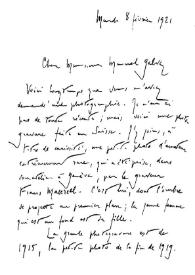 Mardi 8 février 1921
Cher Monsieur Manuel Galvez
Voici longtemps que vous m'avez
demandé une photographie. Je n'en ai
pas de toute récente ; mais voici une photo
gravure faite en Suisse. J'y joins, à
titre de curiosité, une petite photo d'amateur
extrêmement rare, qui a été prise, dans
à Genève, par le graveur
Frans Masereel. C'est lui, dont l'ombre
se projette au premier plan ; la jeune femme
qui est au fond est sa fille.
La grande photogravure est de
1915, la petite photo de la fin de 1919.